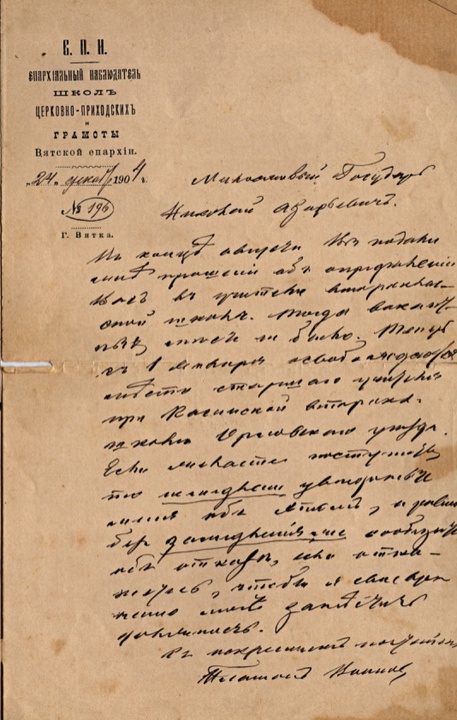 Е. П. И.
ЕПАРХІАЛЬНЫЙ НАБЛЮДАТЕЛЬ
ШКОЛЪ
ЦЕРКОВНО-ПРИХОДСКИХЪ
И
ГРАМОТЫ
Вятской епархіи.
„24„ декаб 1904 г.
№ 196
Г. Вятка.
Милостивый Государь
Николай Азарьевичъ.
Въ концѣ августа Вы подали
мнѣ прошеніе объ опредѣленіи
Васъ въ учителя второклас-
сной школы. Тогда вакант-
ныхъ мѣстъ не было. Теперь
съ 1 января освобождается
мѣсто старшаго учителя
при Косинской второкл.
школѣ Орловскаго уѣзда.
Если желаете поступить,
то немедленно увѣдомьте
меня объ этомъ, и равно
безъ замедленія же сообщите
объ отказѣ, если отка-
жетесь, чтобы я своевре-
менно могъ замѣстить
должность.
Съ почтеніемъ